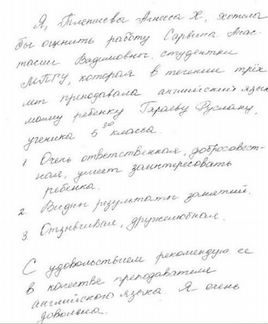 Я, Тлепшева Анеса Х, хотела
бы оценить работу Сарвита Анас-
тасии Вадимовны, студентки
МПГУ, которая в течении трёх
лет преподавала английский язык
моему ребенку Гяраеву Руслану,
ученика 5го класса.
1 Очень ответственная, добросовест-
ная, умеет заинтересовать
ребенка.
2. Видны результаты занятий.
3. Отзывчивая, дружелюбная.
С удовольствием рекомендую ее
в качестве преподавателя
английского языка. Я очень
довольна.